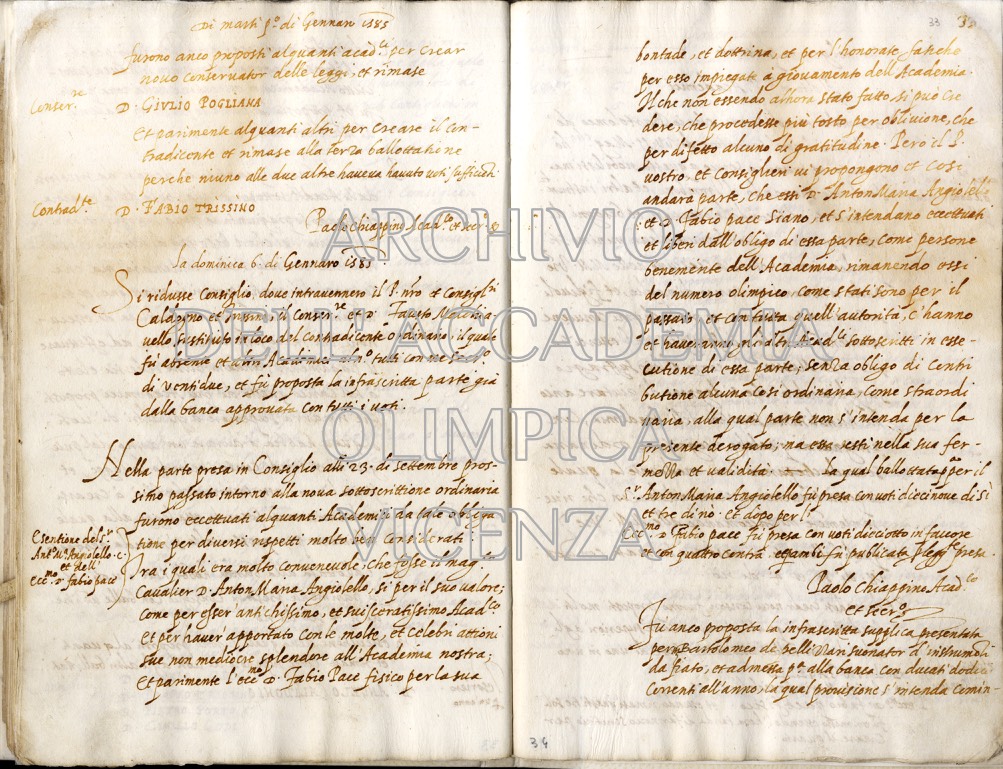 Di marti p.o di Gennaro 1585
furono anco proposti alquanti acad.ci per crear
novo conservator delle leggi, et rimase
Conser.re
D. GIULIO POGLIANA
Et parimente alquanti altri per creare il con-
tradicente et rimase alla terza ballottatione
perche niuno alle due altre haveva havuto voti sufficienti
Contrad.te
D. FABIO TRISSINO
Paolo Chiappino Acad.co et Secr.o
la dominica 6. di Gennaro 1585.
Si ridusse Consiglio, dove intravennero il P. n.ro et Consigl.ri
Caldogno et il conser.re et D. Fausto
vello sustituto in loco del Contradicente ordinario, il quale
fu absente et altri Academici al n.o tutti con me Secr.o
di ventidue, et fu proposta la infrascritta parte già
dalla banca approvata con tutti i voti.
Nella parte presa in Consiglio alli 23. di settembre pros-
simo passato intorno alla nova sottoscrittione ordinaria
furono eccettuati alquanti Academici da tale obliga
tione per diversi rispetti molto ben considerati.
Esentione del S.r
Ant.o M.a Angiolello. c.
et dell'
ecc.mo D. fabio pace
fra i quali era molto convenevole, che fosse il mag.co
Cavalier D. Anton Maria Angiolello, si per il suo valore;
come per esser antichissimo, et suisceratissimo Acad.co
et per haver apportato con le molte, et celebri attioni
sue non mediocre splendore all'Academia nostra;
et parimente l'ecc.mo D. Fabio Pace fisico per la sua
33
bontade, et dottrina, et per l'honorate fatiche
per esso impiegate a giovamento dell'Academia.
Il che non essendo alhora stato fatto, si può cre
dere, che procedesse più tosto per oblivione, che
per difetto alcuno di gratitudine. Però il P.
vostro, et Consiglieri vi propongono et
andarà parte, che essi D. Anton Maria Angiolello
et D. Fabio pace siano, et s'intendano eccettuati
et liberi dall'obligo di essa parte, come persone
benemerite dell'Academia, rimanendo essi
del numero olimpico, come stati sono per il
passato et con tutta quell'autorità, c'hanno
et haveranno gl'altri Acad.ci sottoscritti in esse-
cutione di essa parte, senza obligo di contri
butione alcuna così ordinaria, come straordi
naria, alla qual parte non s'intenda per la
presente derogato; ma essa resti nella sua fer-
mezza et validità. la qual ballottata per il
S.r Anton Maria Angiolello fu presa con voti diecinove di sì
et tre di nò. et dopo per l'
Ecc.mo D. Fabio pace fu presa con voti dicciotto in favore
et con quattro contra. et fu publicata presa.
Paolo Chiappino Acad.co
et Secr.o
Fu anco proposta la infrascritta supplica presentata
per Bartolomeo de belli Van suonator d'instrumenti
da fiato, et admessa p.a alla banca con ducati dodici
correnti all'anno, la qual provisione s'intenda comin-
34
ARCHIVIO
DELL'ACCADEMIA
OLIMPICA
VICENZA